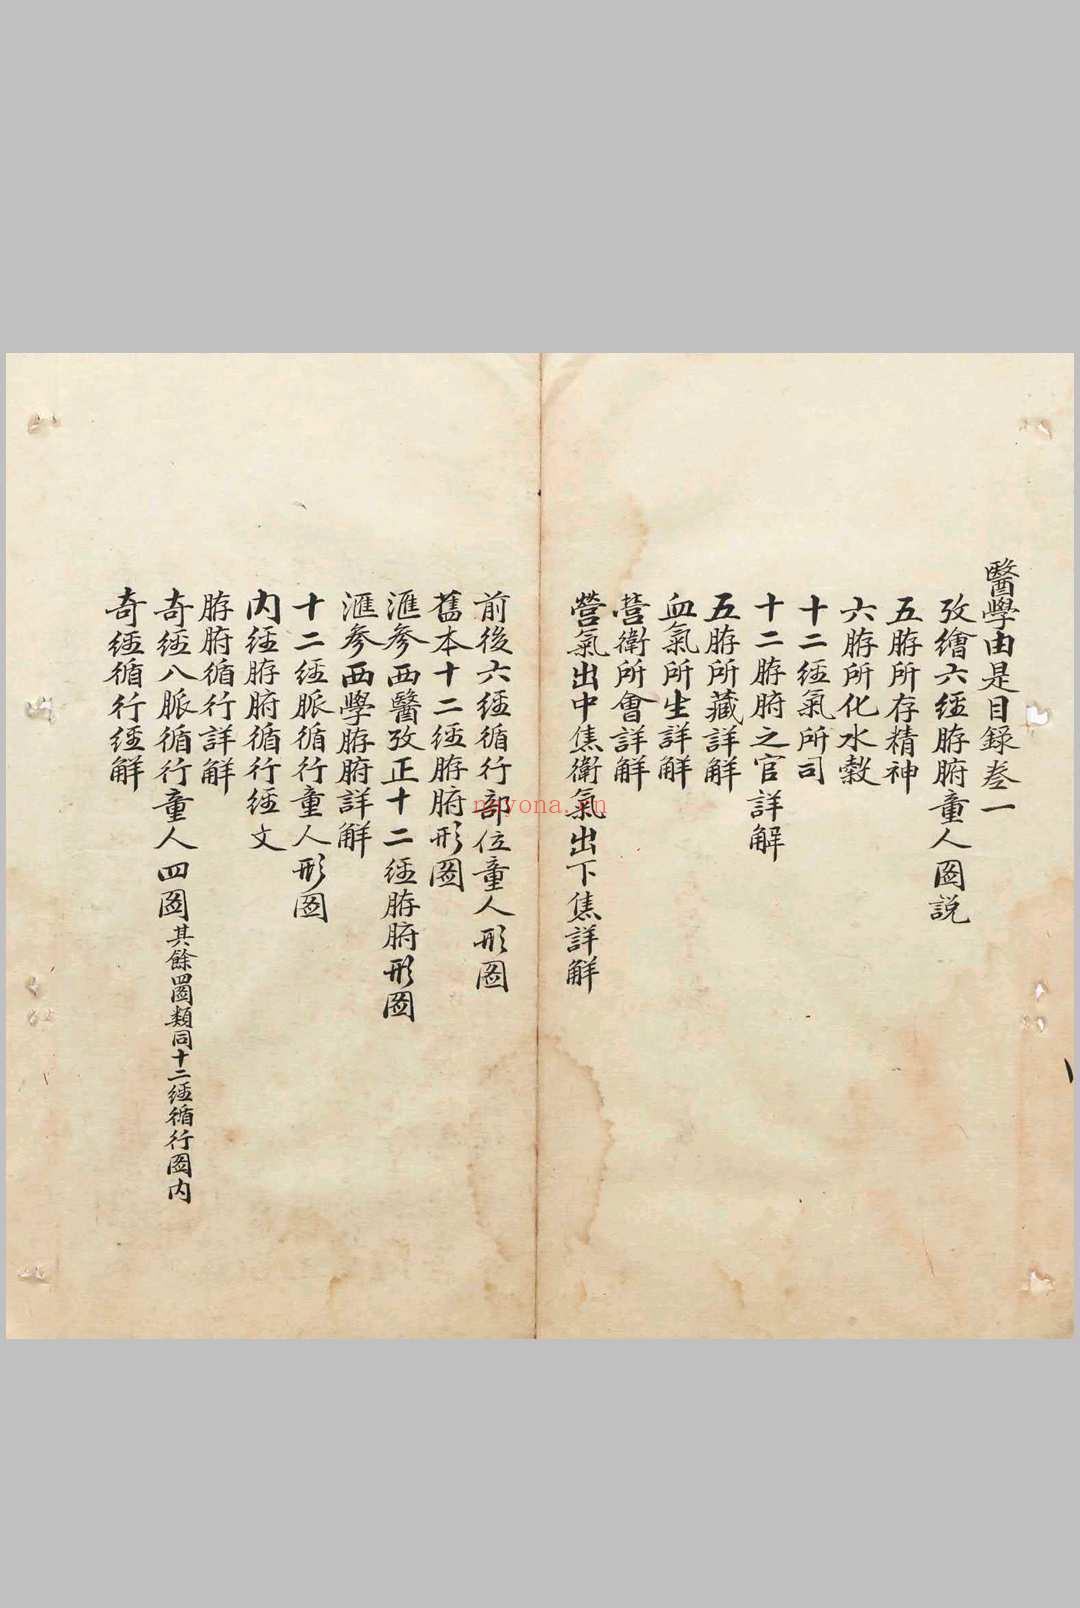 醫學由是目録叁一
攷繪六經脐腑童人圖説
五脐所存精神
六脐所化水穀
十二經氣所司
十二脐腑之官詳解
五脐所藏詳解
血氣所生詳解
營衛所會詳解
營氣出中焦衛氣出下焦詳解
前後六經循行部位童人形圖
舊本十二經脐腑形圖
滙參西醫攷正十二經脐腑形圖
滙參西學脐腑詳解
十二經脈循行童人形圖
内經脐腑循行經文
脐腑循行詳解
奇經八脈循行童人四圖其餘四圖類同十二經循行圖内
奇經循行經解
nayona.cn